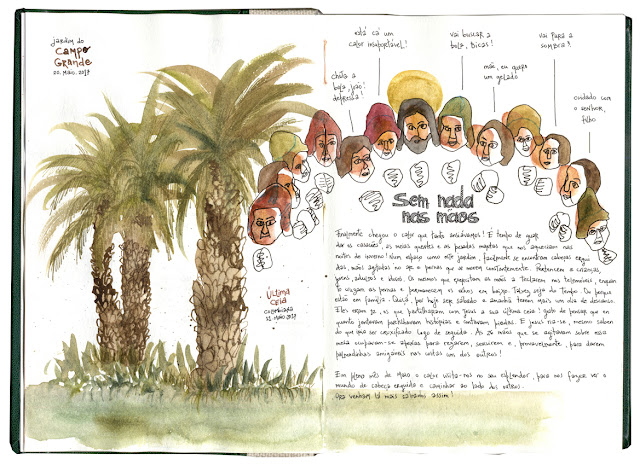 jardim do
CAMPO
GRANDE
20. MAIO. 2017
está cá um
calor insuportável!
vai buscar a
bola, Bicas!
vai para a
sombra!
chuta a
bola, João!
depressa!
mãe, eu quero
um gelado
cuidado com
o senhor,
filho
Sem nada
nas mãos
ÚLTIMA
CEIA
21. MAIO 2017
Finalmente chegou o calor que tanto ansiávamos! É tempo de guar
dar os casacos, as meias quentes e as pesadas mantas que nos aqueciam nas
noites de inverno! Num espaço como este jardim, facilmente se encontram cabeças ergui
das, mãos agitadas no ar e pernas que se movem constantemente. Pertencem a crianças,
jovens, adultos e idosos. Os mesmos que enquanto as mãos a teclarem nos telemóveis,
e as pernas e permanecem os olhos em baixo. Talvez seja do tempo. Ou porque
estão em família. Quiçá, por hoje ser sábado e amanhã terem mais um dia de descanso.
Eles eram 12, os que partilharam com Jesus a sua última ceia! gosto de pensar que en
quanto jantavam partilhavam histórias e contavam piadas. E Jesus ria-se, mesmo saben
do que iria ser crucificado logo de seguida. As 26 mãos que se agitavam sobre essa
mesa ocuparam-se apenas para regarem, servirem e, provavelmente, para darem
palmadinhas amigáveis nas costas uns dos outros!
Em pleno mês de Maio o calor visita-nos no seu esplendor, para nos fazer ver o
mundo de cabeça erguida e caminhar ao lado dos outros.
Ora venham lá mais sábados assim!